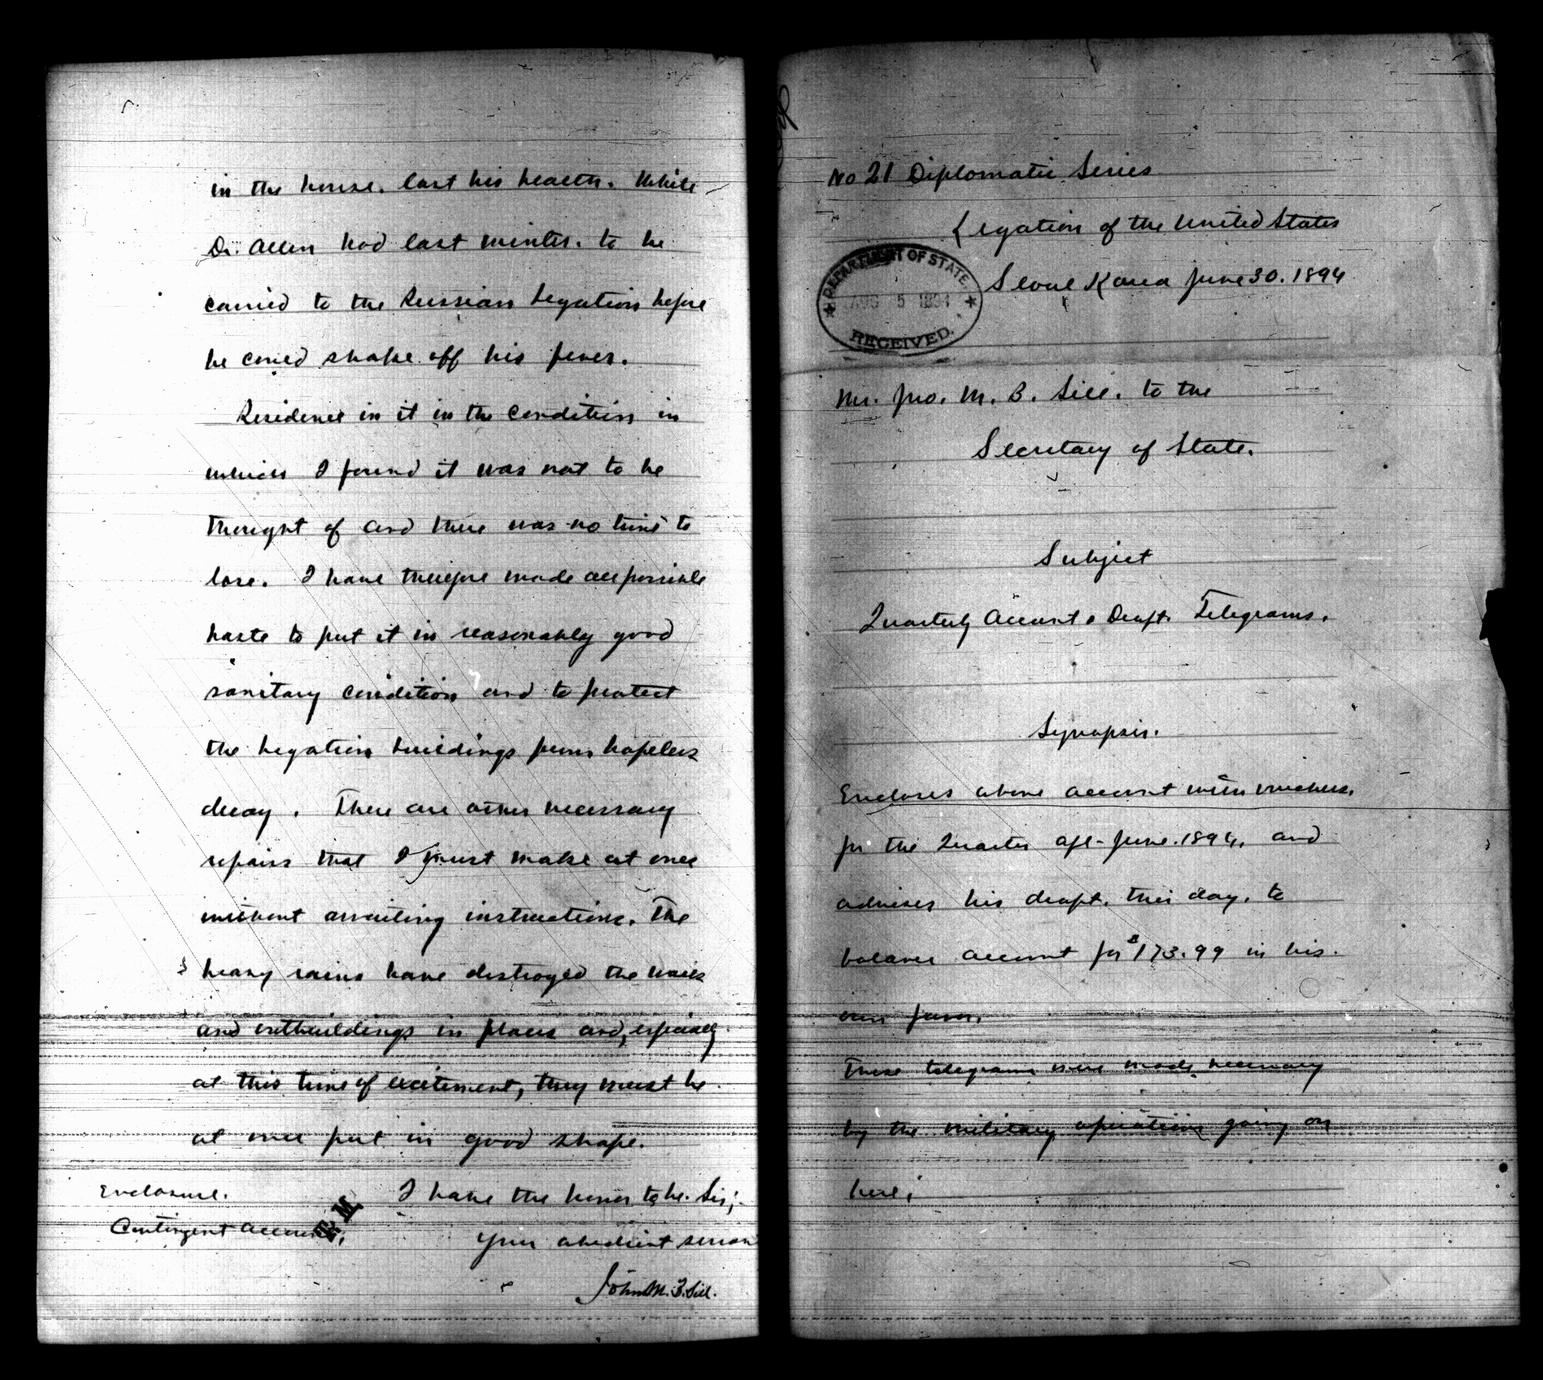 in the house. lost his health. While
Dr. Allen had last winter. to be
carried to the Russian Legation before
he could shake off his fever.
Residence in it in the condition in
which I found it was not to be
thought of and there was no time to
lose. I have therefore made all possible
haste to put it in reasonably good
sanitary condition and to protect
the Legation buildings from hopeless
decay. There are other necessary
repairs that I must make at once
without awaiting instructions. The
heavy rains have destroyed the walls
and outbuildings in places and, especially
at this time of excitement, they must be
at once put in good shape.
I have the honor to be. Sir;
Your obedient servant
John M. B. Sill.
Enclosure.
Contingent account.
No 21 Diplomatic Series
Legation of the United States
Seoul Korea June 30. 1894
DEPARTMENT OF STATE.
AUG 5 1894
RECEIVED.
Mr. Jno. M. B. Sill. to the
Secretary of State.
Subject
Quarterly Account & Draft. Telegrams.
Synopsis.
Encloses above account with vouchers,
for the Quarter Apl-June. 1894, and
advises his draft. this day. to
balance account for $173.99 in his.
own favor.
These telegrams were made necessary
by the military operations going on
here;